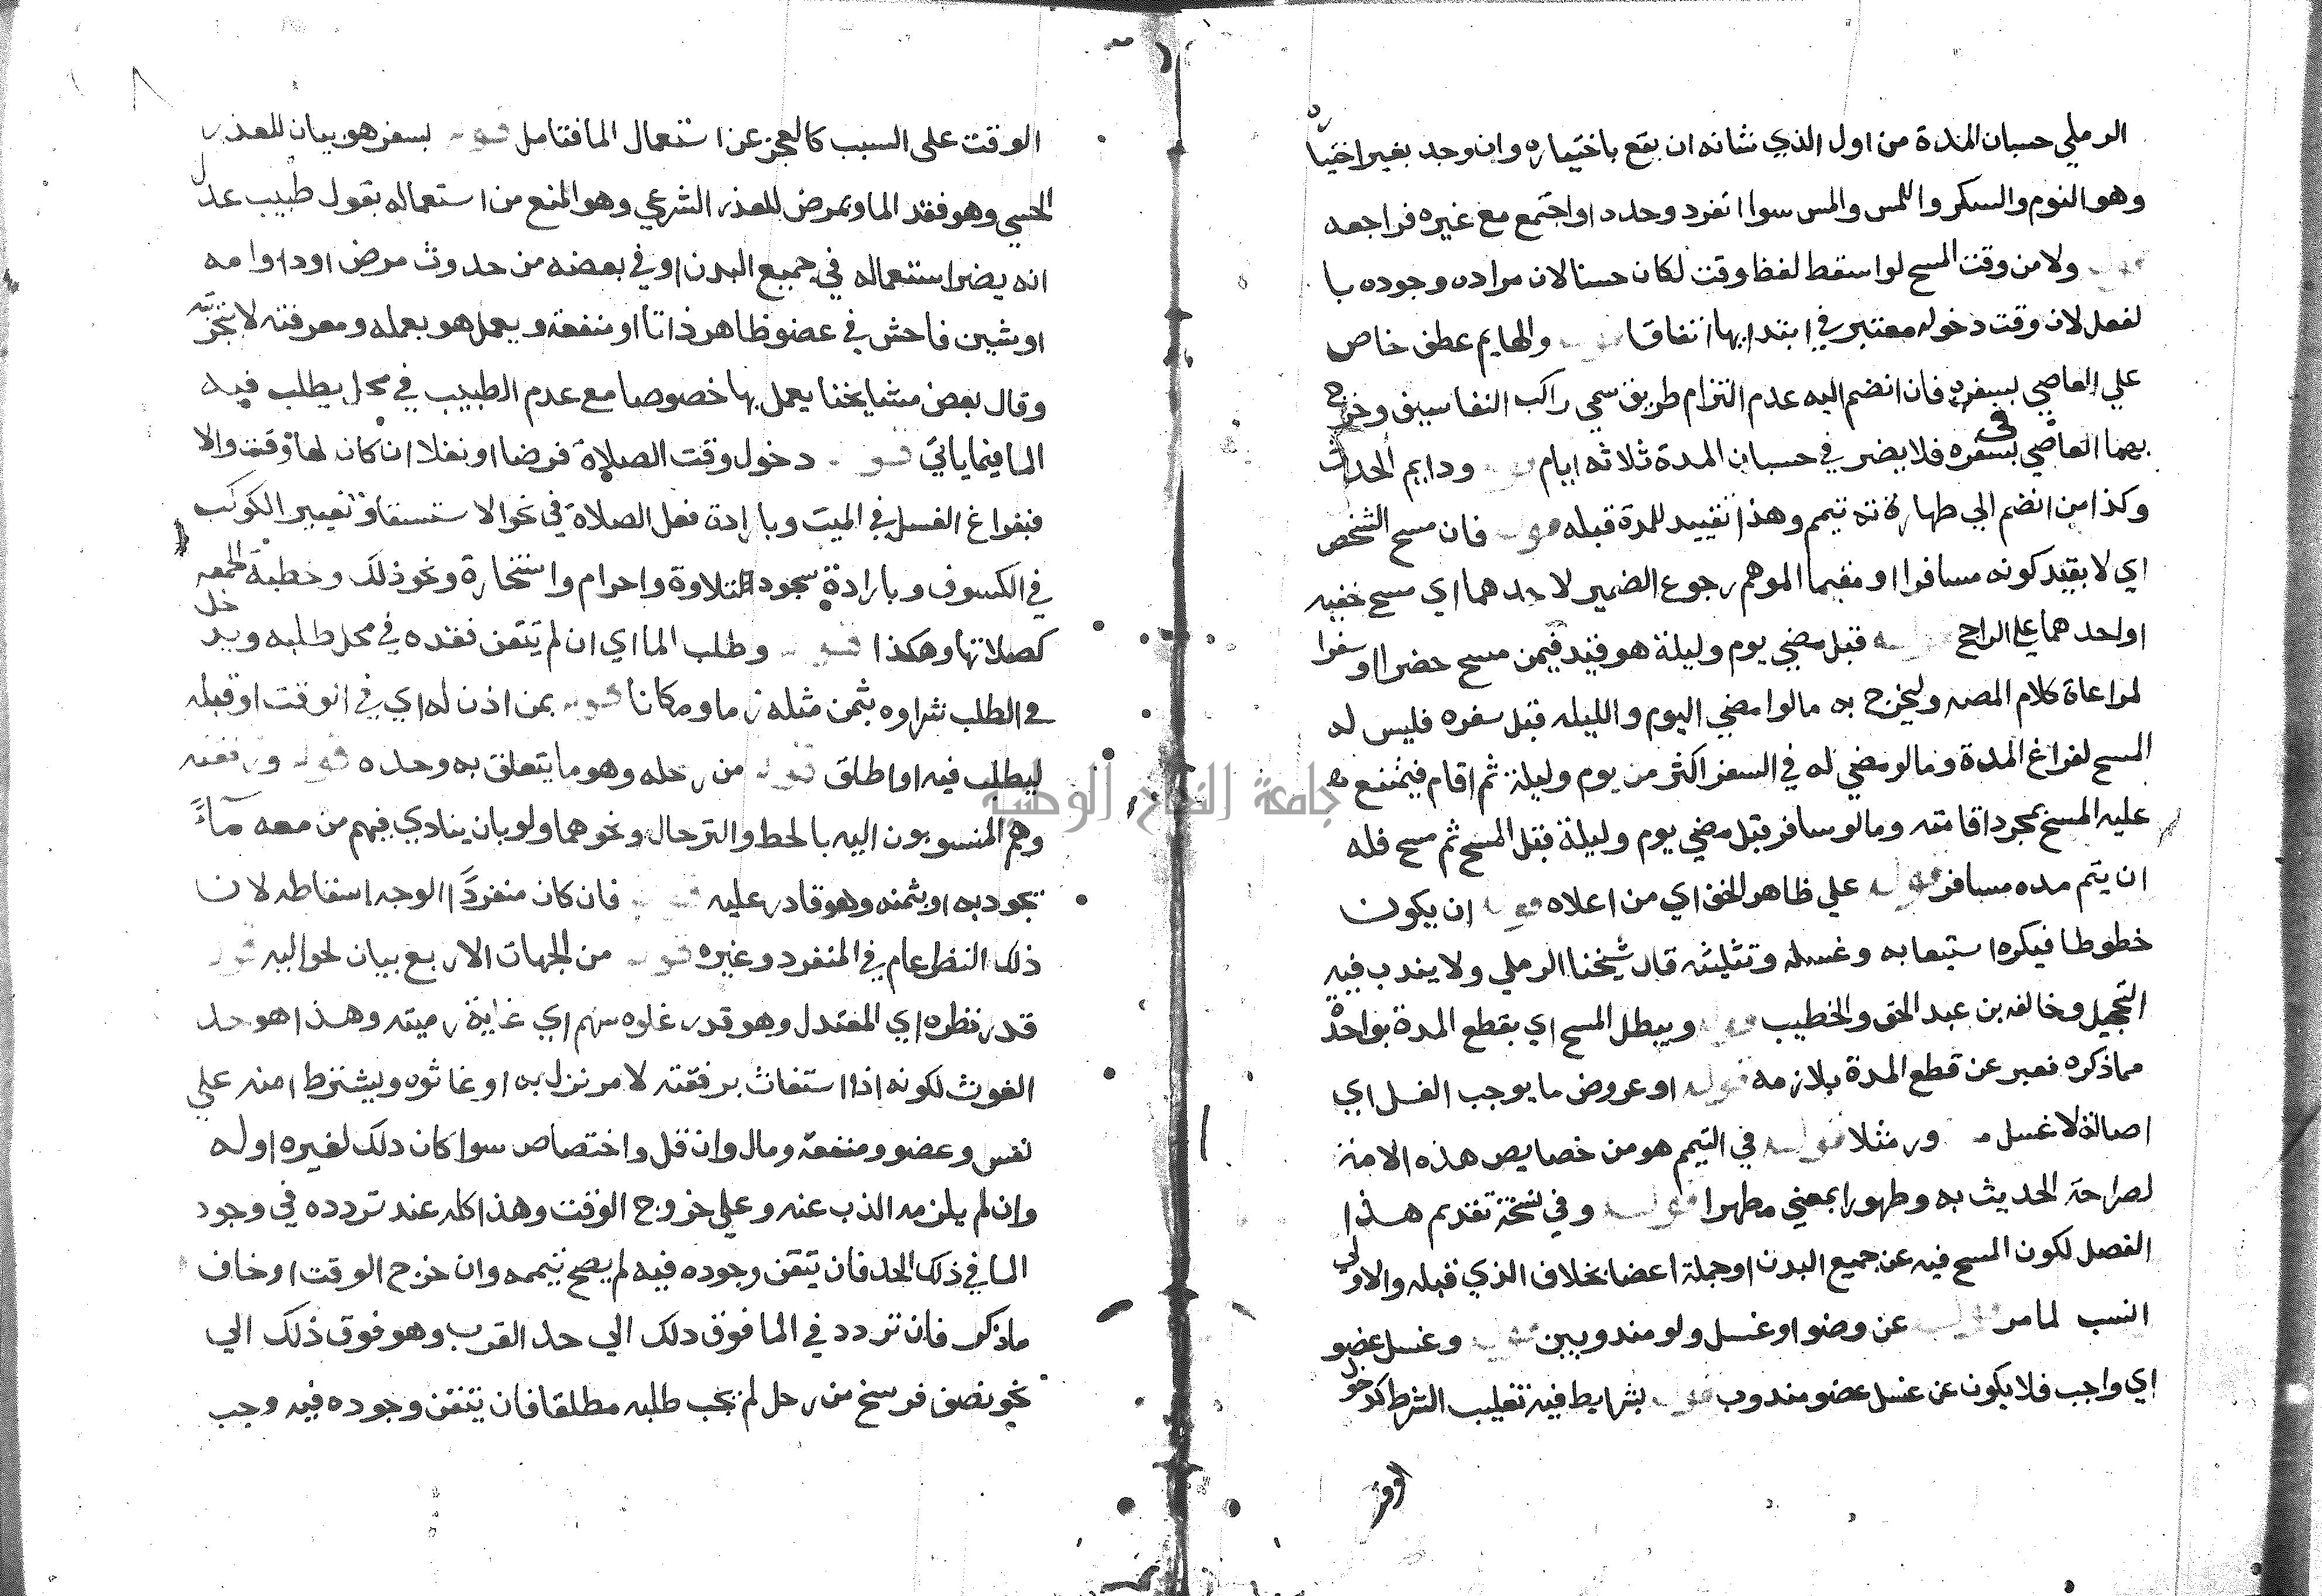 الرملي حسبان المدة من اول الذي شانه ان يقع باختياره وان وجد بغير اختياره
وهو النوم والسكر واللمس والمس سوا انفرد وحدد او اجتمع مع غيره فراجعه
قوله ولا من وقت المسح لو اسقط لفظ وقت لكان حسنا لان مراده وجوده با
لفعل لان وقت دخوله معتبر في ابتدايها اتفاقا قوله والهايم عطف خاص
علي العاصي بسفره فان انضم اليه عدم التزام طريق سمي راكب التفاسيف وخرج
بهما العاصي في سفره فلا يضر في حسبان المدة ثلاثه ايام قوله ودايم الحدث
وكذا من انضم الي طهارته تيمم وهذا تقييد للمدة قبله قوله فان مسح الشخص
اي لا بقيد كونه مسافرا او مقيما الموهم رجوع الضمير لاحدهما اي مسح خفيه
او احدهما علي الراجح قوله قبل مضي يوم وليلة هو قيد فيمن مسح حضرا او سفرا
لمراعاة كلام المصه وليخرج به مالوا مضي اليوم والليله قبل سفره فليس له
المسح لفراغ المدة وما لو مضي له في السفر اكثر من يوم وليلة ثم اقام فيمتنع
عليه المسح بمجرد اقامته وما لو سافر قبل مضي يوم وليلة فقل المسح ثم مسح فله
ان يتم مده مسافر قوله علي ظاهر الخف اي من اعلاه قوله ان يكون
خطوطا فيكره استيعابه وغسله وتثليثه قال شيخنا الرملي ولا يندب فيه
التحجيل وخالفه بن عبد الحق والخطيب قوله ويبطل المسح اي بقطع المدة بواحدة
مما ذكره فعبر عن قطع المدة بلازمه قوله او عروض ما يوجب الغسل اي
اصالة لا غسل ورمثلا قوله في التيمم هو من خصايص هذه الامة
لصراحة الحديث به وطهورا بمعني مطهرا قوله وفي نسخة تقديم هذا
الفصل لكون المسح فيه عن جميع البدن او جملة اعضا بخلاف الذي قبله والاولي
انسب لما مر قوله عن وضو او غسل ولو مندوبين قوله وغسل عضو
اي واجب فلا يكون عن غسل عضو مندوب قوله بشرايط فيه تغليب الشرط كدخول
الوقت
الوقت على السبب كالعجز عن استعمال الما فتامل قوله بسفر هو بيان للعذر
الحسي وهو فقد الما وبمرض للعذر الشرعي وهو المنع من استعماله بقول طبيب عدل
انه يضر استعماله في جميع البدن او في بعضه من حدوث مرض او دوامه
او شين فاحش في عضو ظاهر ذاتا او منفعة ويعمل هو بعمله ومعرفته لا بتجربته
وقال بعض مشايخنا يعمل بها خصوصا مع عدم الطبيب في محل يطلب فيه
الما فيما ياتي قوله دخول وقت الصلاة فرضا او نفلا ان كان لها وقت والا
فبفراغ الغسل في الميت وبارادة فعل الصلاة في نحو الاستسقا وتغيير الكوكب
في الكسوف وبارادة سجود التلاوة واحرام واستخارة ونحو ذلك وخطبة الجمعه
كصلاتها وهكذا قوله وطلب الما اي ان لم يتقن فقده في محل طلبه ويدخل
في الطلب شراوه بثمن مثله زما ومكانا قوله بمن اذن له اي في الوقت او قبله
ليطلب فيه او اطلق قوله من رحله وهو ما يتعلق به وحده قوله ورفقته
وهم المنسوبون اليه بالحط والترحال ونحوهما ولو بان ينادي فيهم من معه مآءً
يجود به او بثمنه وهو قادر عليه قوله فان كان منفردًا الوجه اسقاطه لان
ذلك النظر عام في المنفرد وغيره قوله من الجهات الاربع بيان لحواليه قوله
قدر نظره اي المعتدل وهو قدر غلوه سهم اي غاية رميته وهذا هو حد
الغوث لكونه اذا استغاث برفقته لامر نزل به اوغاثوه ويشترط امنه علي
نفس وعضو ومنفعة ومال وان قل واختصاص سوا كان ذلك لغيره اوله
وان لم يلزمه الذب عنه وعلي خروج الوقت وهذا كله عند تردده في وجود
الما في ذلك الحد فان تيقن وجوده فيه لم يصح تيممه وان خرج الوقت او خاف
ما ذكر فان تردد في الما فوق دلك الي حد القرب وهو فوق ذلك الي
نحو نصف فرسخ من رحل لم يجب طلبه مطلقا فان يتقن وجوده فيه وجب
جامعة النجاح الوطنية